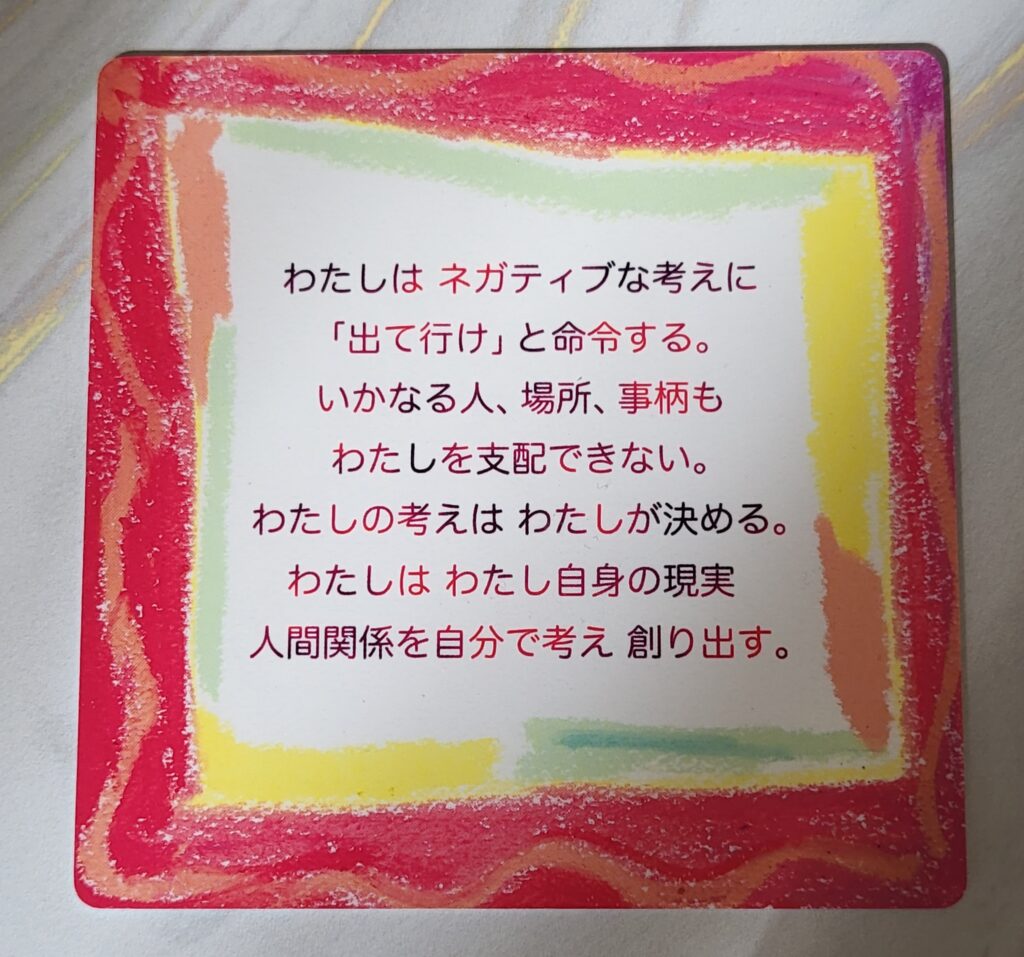 わたしは ネガティブな考えに
「出て行け」と命令する。
いかなる人、場所、事柄も
わたしを支配できない。
わたしの考えは わたしが決める。
わたしは わたし自身の現実
人間関係を自分で考え 創り出す。